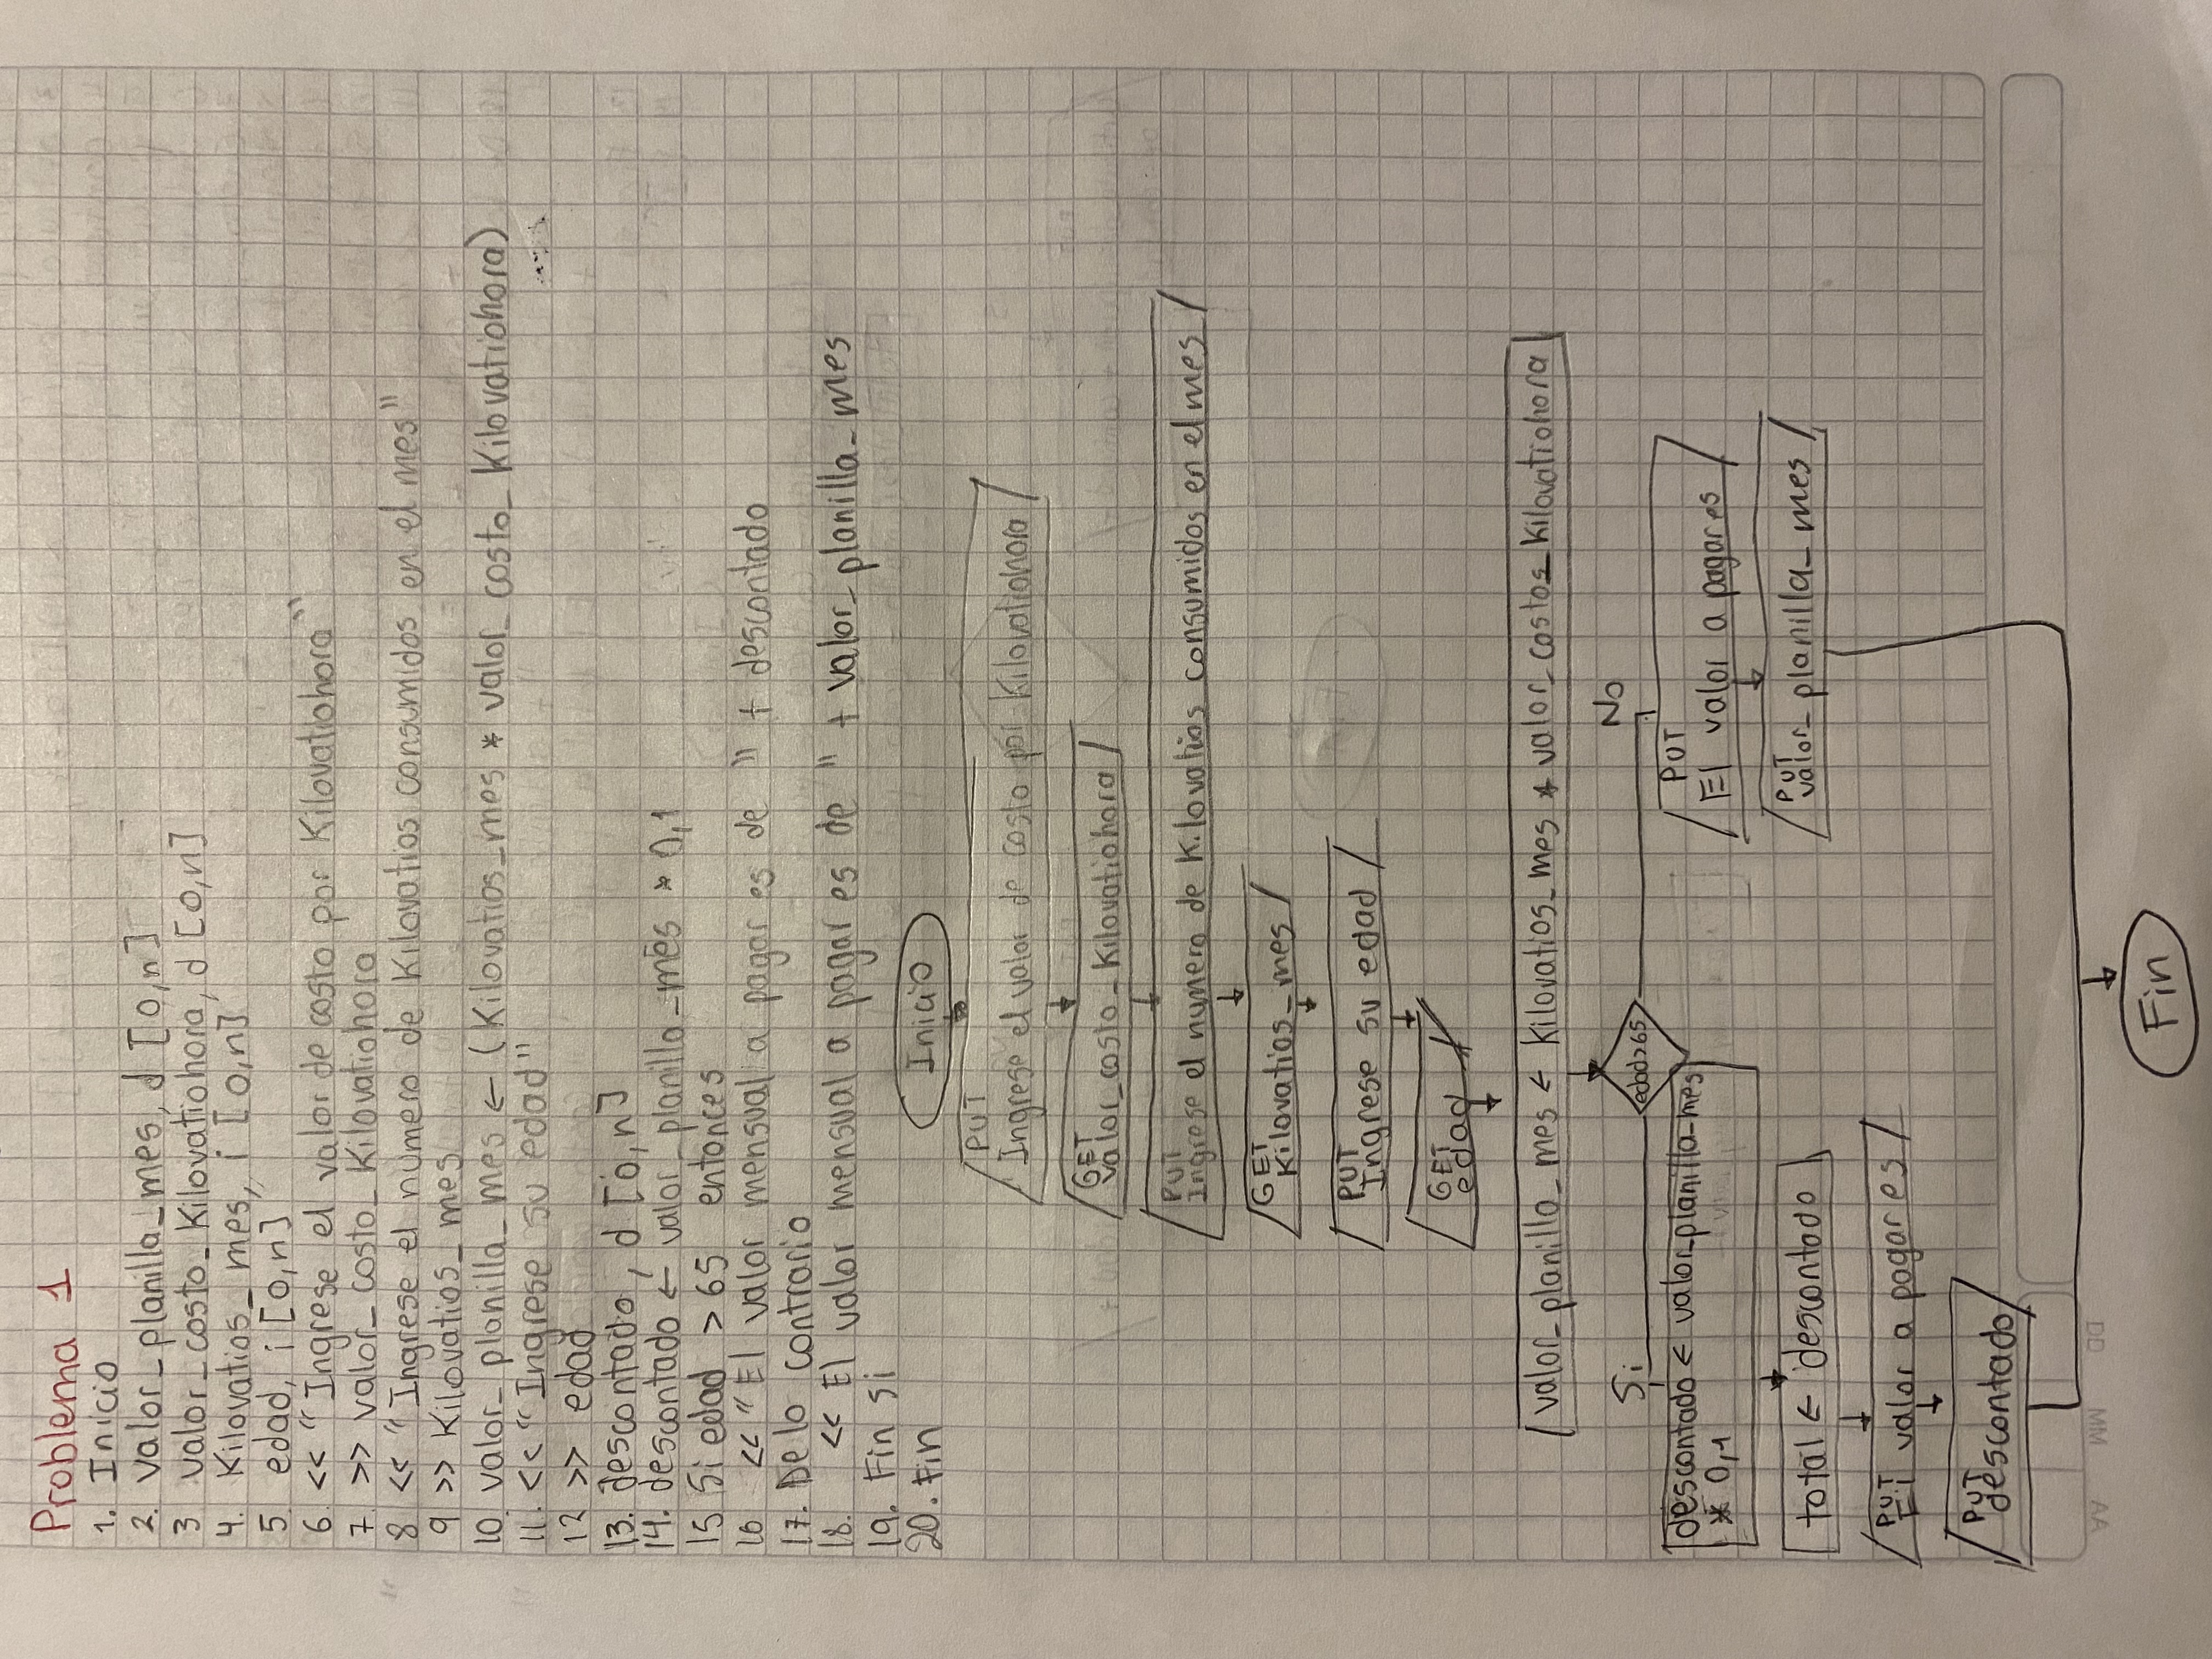 Problema 1
1. Inicio
2. valor_planilla_mes, d [0,n]
3 valor_costo_Kilovatiohora, d [0,n]
4. Kilovatios_mes, i [0,n]
5 edad, i [0,n]
6. << "Ingrese el valor de costo por Kilovatiohora"
7 >> valor_costo_Kilovatiohora
8 << "Ingrese el numero de Kilovatios consumidos en el mes"
9 >> Kilovatios_mes
10 valor_planilla_mes ← (Kilovatios_mes * valor_costo_Kilovatiohora)
11. << "Ingrese su edad"
12 >> edad
13. descontado, d [0,n]
14. descontado ← valor_planilla_mes * 0,1
15 Si edad > 65 entonces
16 << "El valor mensual a pagar es de " + descontado
17. De lo contrario
18. << El valor mensual a pagar es de " + valor_planilla_mes
19. Fin si
20. Fin
Inicio
PUT
Ingrese el valor de costo por Kilovatiohora
GET
valor_costo_Kilovatiohora
PUT
Ingrese el numero de Kilovatios consumidos en el mes
GET
Kilovatios_mes
PUT
Ingrese su edad
GET
edad
valor_planilla_mes ← Kilovatios_mes * valor_costos_Kilovatiohora
edad>65
Si
No
descontado ← valor_planilla_mes
* 0,1
total ← descontado
PUT
El valor a pagar es
PUT
descontado
PUT
El valor a pagar es
PUT
valor_planilla_mes
Fin
AA MM DD